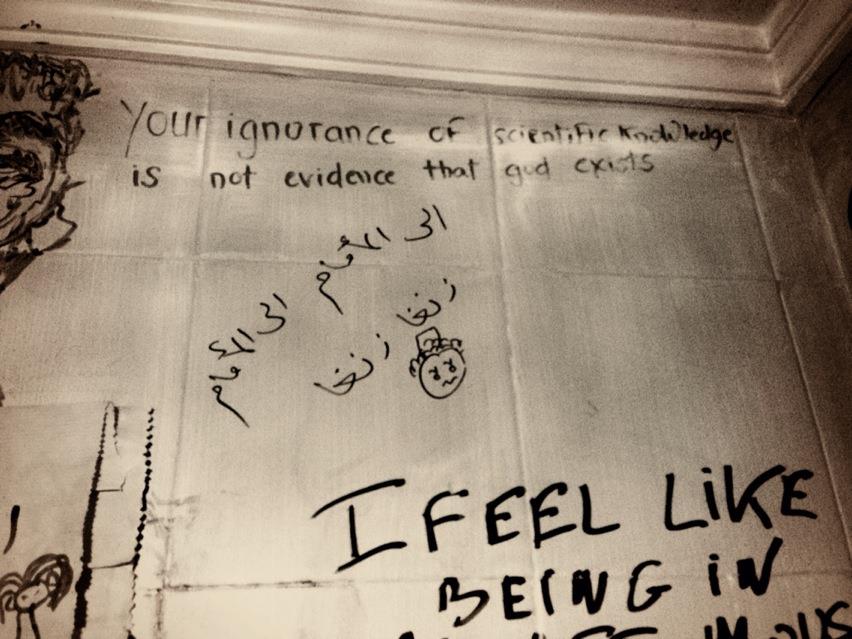 Your ignorance of scientific knowledge
is not evidence that god exists
الى الأمام
الى الأمام
زنقا
زنقا
I FEEL LiKE
BEING iN